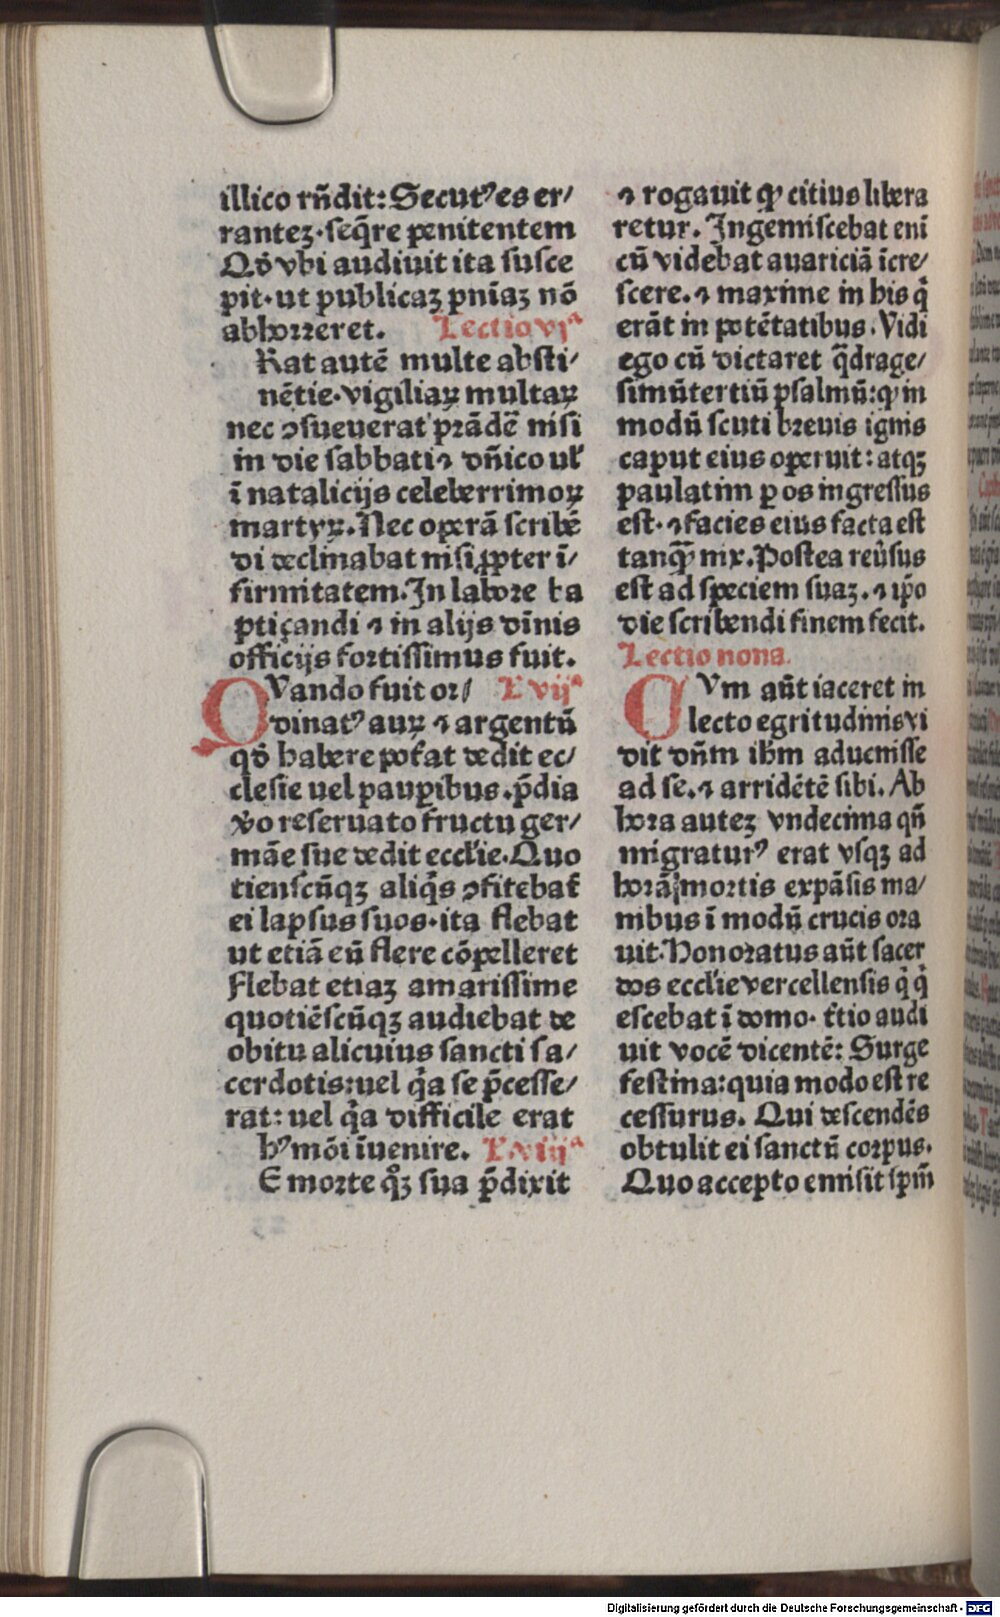 illico rñdit: Secutꝰ es er/
rantez·seq̃re penitentem
Qð vbi audiuit ita susce
pit·ut publicaꝫ pnĩaꝫ nõ
abhorreret. Lectio vjª
Rat autẽ multe absti/
nẽtie·vigiliaꝝ multaꝝ
nec ꝯsueuerat prãdẽ nisi
in die sabbati ⁊ dñico ul'
ĩ natalicijs celeberrimoꝝ
martyꝝ. Nec operã scribẽ
di declinabat nisi ꝓpter ĩ/
firmitatem. In labore ba
ptiçandi ⁊ in alijs diĩnis
officijs fortissimus fuit.
QVando fuit or/ L̃ vijª
dinatꝰ auꝝ ⁊ argentũ
qð habere poťat dedit ec/
clesie uel pauꝑibus. p̃dia
ṽo reseruato fructu ger/
mãe sue dedit eccl'ie. Quo
tienscũqꝫ aliq̃s ꝯfitebať
ei lapsus suos·ita flebat
ut etiã eũ flere cõpelleret
flebat etiaꝫ amarissime
quotiẽscũqꝫ audiebat de
obitu alicuius sancti sa/
cerdotis: uel q̃a se p̃cesse/
rat: uel q̃a difficile erat
hꝰmõi ĩuenire. L̃. viijª
E morte qꝫ sua p̃dixit
⁊ rogauit ꝙ citius libera
retur. Ingemiscebat eni
cũ videbat auariciã ĩcre/
scere. ⁊ maxime in his q̃
erãt in potẽtatibus. Vidi
ego cũ dictaret q̃drage/
simũtertiũ psalmũ: ꝙ in
modũ scuti breuis ignis
caput eius operuit: atqꝫ
paulatim ꝑ os ingressus
est·⁊ facies eius facta est
tanꝙ̃ nix. Postea reũsus
est ad speciem suaꝫ. ⁊ ip̃o
die scribendi finem fecit.
Lectio nona.
CVm aũt iaceret in
lecto egritudinis vi
dit dñm ihm aduenisse
ad se. ⁊ arridẽtẽ sibi. Ab
hora autez vndecima qñ
migraturꝰ erat vsqꝫ ad
horã mortis expãsis ma/
nibus ĩ modũ crucis ora
uit. Honoratus aũt sacer
dos eccl'ie vercellensis q̃ q̃
escebat ĩ domo· t̃tio audi
uit vocẽ dicentẽ: Surge
festina: quia modo est re
cessurus. Qui descendẽs
obtulit ei sanctũ corpus.
Quo accepto emisit spm̃
Digitalisierung gefördert durch die Deutsche Forschungsgemeinschaft - DFG